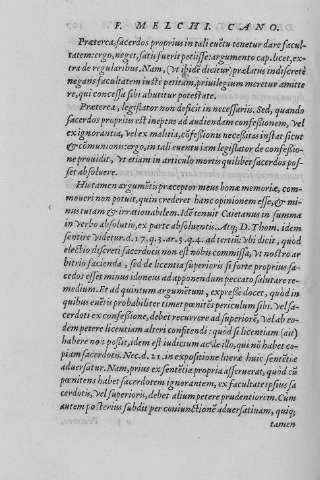 F. MELCHI. CANO.
Præterea, sacerdos proprius in tali euētu tenetur dare facul-
tatem: ergo, neget, satis fuerit potuisse: argumento cap. licet, ex-
tra de regularibus. Nam, (vt ibidē dicitur) prælatus indiscretè
negans facultatem iustè petitam, priuilegium meretur amitte
re, qui concessa sibi abutitur potestate.
Præterea, legislator non deficit in necessariis. Sed, quando
sacerdos proprius est ineptus ad audiendam confeßionem, vel
ex ignorantia, vel ex malitia, cōfeßionis necessitas instat sicut
& cōmunionis: ergo, in tali euentu iam legislator de confeßio-
ne prouidit, vt etiam in articulo mortis quilibet sacerdos pos-
set absoluere.
His tamen argumētis præceptor meus bonæ memoriæ, com-
moueri non potuit, quin crederet hanc opinionem esse, & mi-
nus tutam & irrationabilem. Idē tenuit Caietanus in summa
in verbo absolutio, ex parte absoluentis. Atq; D. Thom. idem
sentire videtur. d. 17. q. 3. ar. 3. q. 4. ad tertiū: vbi dicit, quòd
electio discreti sacerdotis non est nobis commissa, vt nostro ar
bitrio facienda, sed de licentia superioris si forte proprius sa-
cerdos esset minus idoneus ad apponendum peccato salutare re-
medium. Et ad quintum argumētum, expreßè docet, quòd in
quibus euētis probabiliter timet pœnitēs periculum sibi, vel sa-
cerdoti ex confeßione, debet recurrere ad superiorē, vel ab eo-
dem petere licentiam alteri confitendi: quòd si licentiam (ait)
habere non poßit, idem est iudicium ac de illo, qui nō habet co-
piam sacerdotis. Nec. d. 21. in expositione literæ huic sentētiæ
aduersatur. Nam, prius ex sentētia propria asseruerat, quòd cū
pœnitens habet sacerdotem ignorantem, ex facultate ipsius sa
cerdotis, vel superioris, debet alium petere prudentiorem. Cum
autem posterius subdit per coniunctionē aduersatiuam, quiq;
tamen